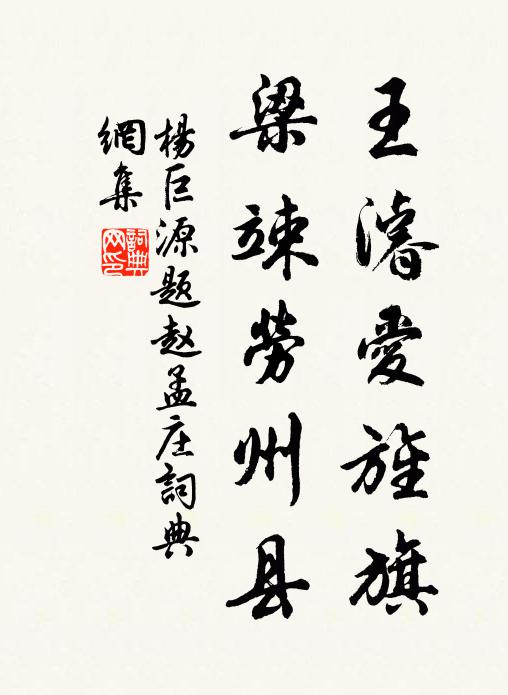 王濬爱旌旗
梁竦劳州县
楊巨源题赵孟庄詞典
網集
詞典
网印